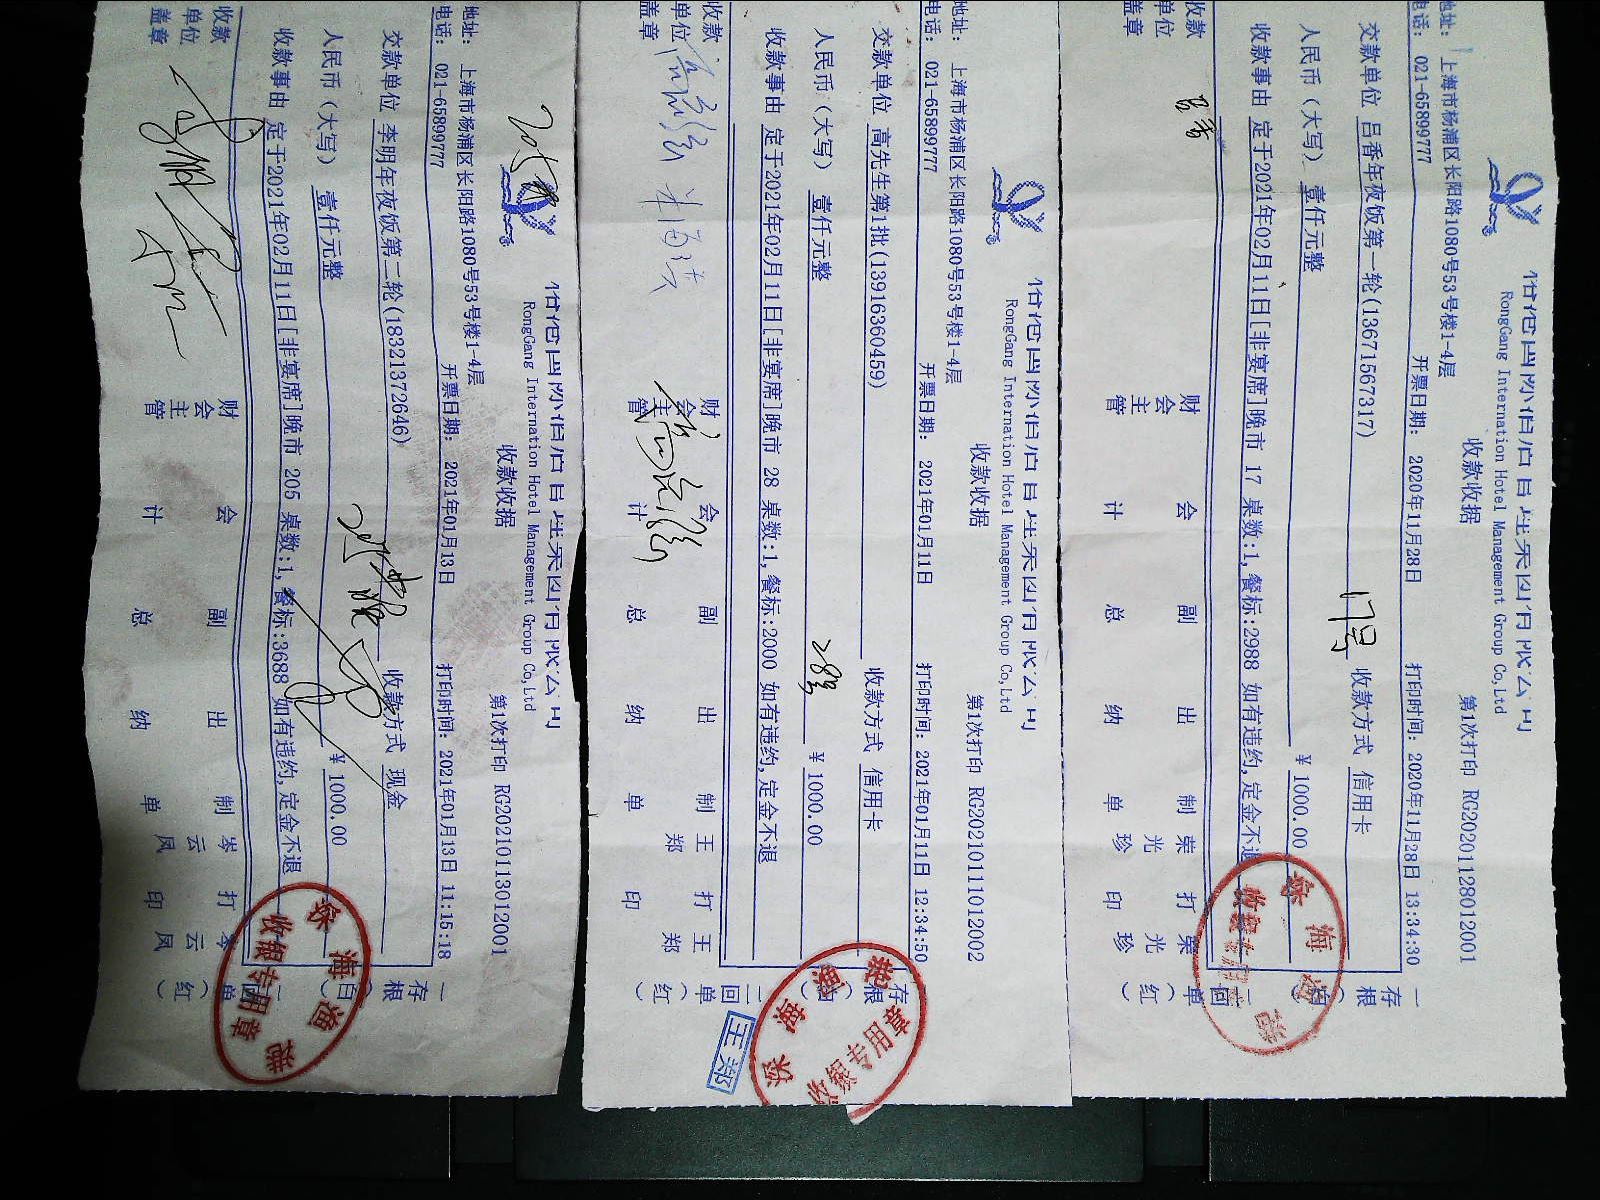 RongGang Internation Hotel Management Group Co,Ltd
收款收据
第1次打印 RG20210113012001
地址: 上海市杨浦区长阳路1080号53号楼1-4层
电话: 021-65899777
开票日期: 2021年01月13日
打印时间: 2021年01月13日 11:15:18
交款单位 李明年夜饭第二轮(18321372646)
收款方式 现金
人民币(大写) 壹仟元整
¥ 1000.00
收款事由 定于2021年02月11日[非宴席]晚市 205 桌数:1,餐标:3688 如有违约,定金不退
收款单位盖章
财会主管
会计
副总
出纳
制单 岑云凤
打印 岑云凤
一存根(白)
二回单(红)
深海渔港
收银专用章
RongGang Internation Hotel Management Group Co,Ltd
收款收据
第1次打印 RG20210111012002
地址: 上海市杨浦区长阳路1080号53号楼1-4层
电话: 021-65899777
开票日期: 2021年01月11日
打印时间: 2021年01月11日 12:34:50
交款单位 高先生第1批(13916360459)
收款方式 信用卡
人民币(大写) 壹仟元整
28号
¥ 1000.00
收款事由 定于2021年02月11日[非宴席]晚市 28 桌数:1,餐标:2000 如有违约,定金不退
收款单位盖章
财会主管
会计
副总
出纳
制单 王郑
打印 王郑
一存根(白)
二回单(红)
深海渔港
收银专用章
王郑
RongGang Internation Hotel Management Group Co,Ltd
收款收据
第1次打印 RG20201128012001
地址: 上海市杨浦区长阳路1080号53号楼1-4层
电话: 021-65899777
开票日期: 2020年11月28日
打印时间: 2020年11月28日 13:34:30
交款单位 吕香年夜饭第一轮(13671567317)
17号
收款方式 信用卡
人民币(大写) 壹仟元整
¥ 1000.00
收款事由 定于2021年02月11日[非宴席]晚市 17 桌数:1,餐标:2988 如有违约,定金不退
收款单位盖章
吕香
财会主管
会计
副总
出纳
制单 荣光珍
打印 荣光珍
一存根(白)
二回单(红)
深海渔港
收银专用章